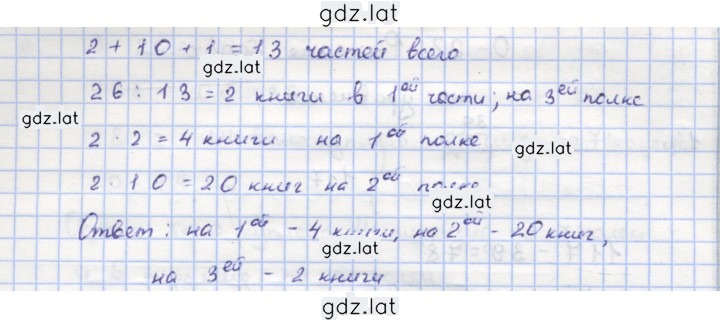 gdz.lat
2 + 10 + 1 = 13 частей всего
gdz.lat
26 : 13 = 2 книги в 1ой части; на 3ей полке
2 · 2 = 4 книги на 1ой полке
gdz.lat
2 · 10 = 20 книг на 2ой полке
gdz.lat
Ответ: на 1ой - 4 книги, на 2ой - 20 книг,
gdz.lat
на 3ей - 2 книги
gdz.lat